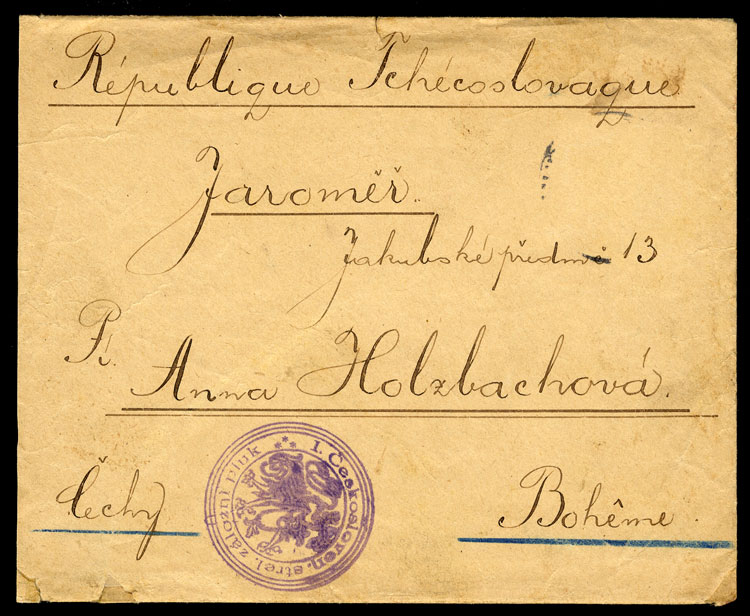 République Tchécoslovaque
Jaroměř.
Jakubské předm. 13
Pí.
Anna Holzbachová.
I. Českosloven. střel. záložní pluk
Čechy
Bohême.